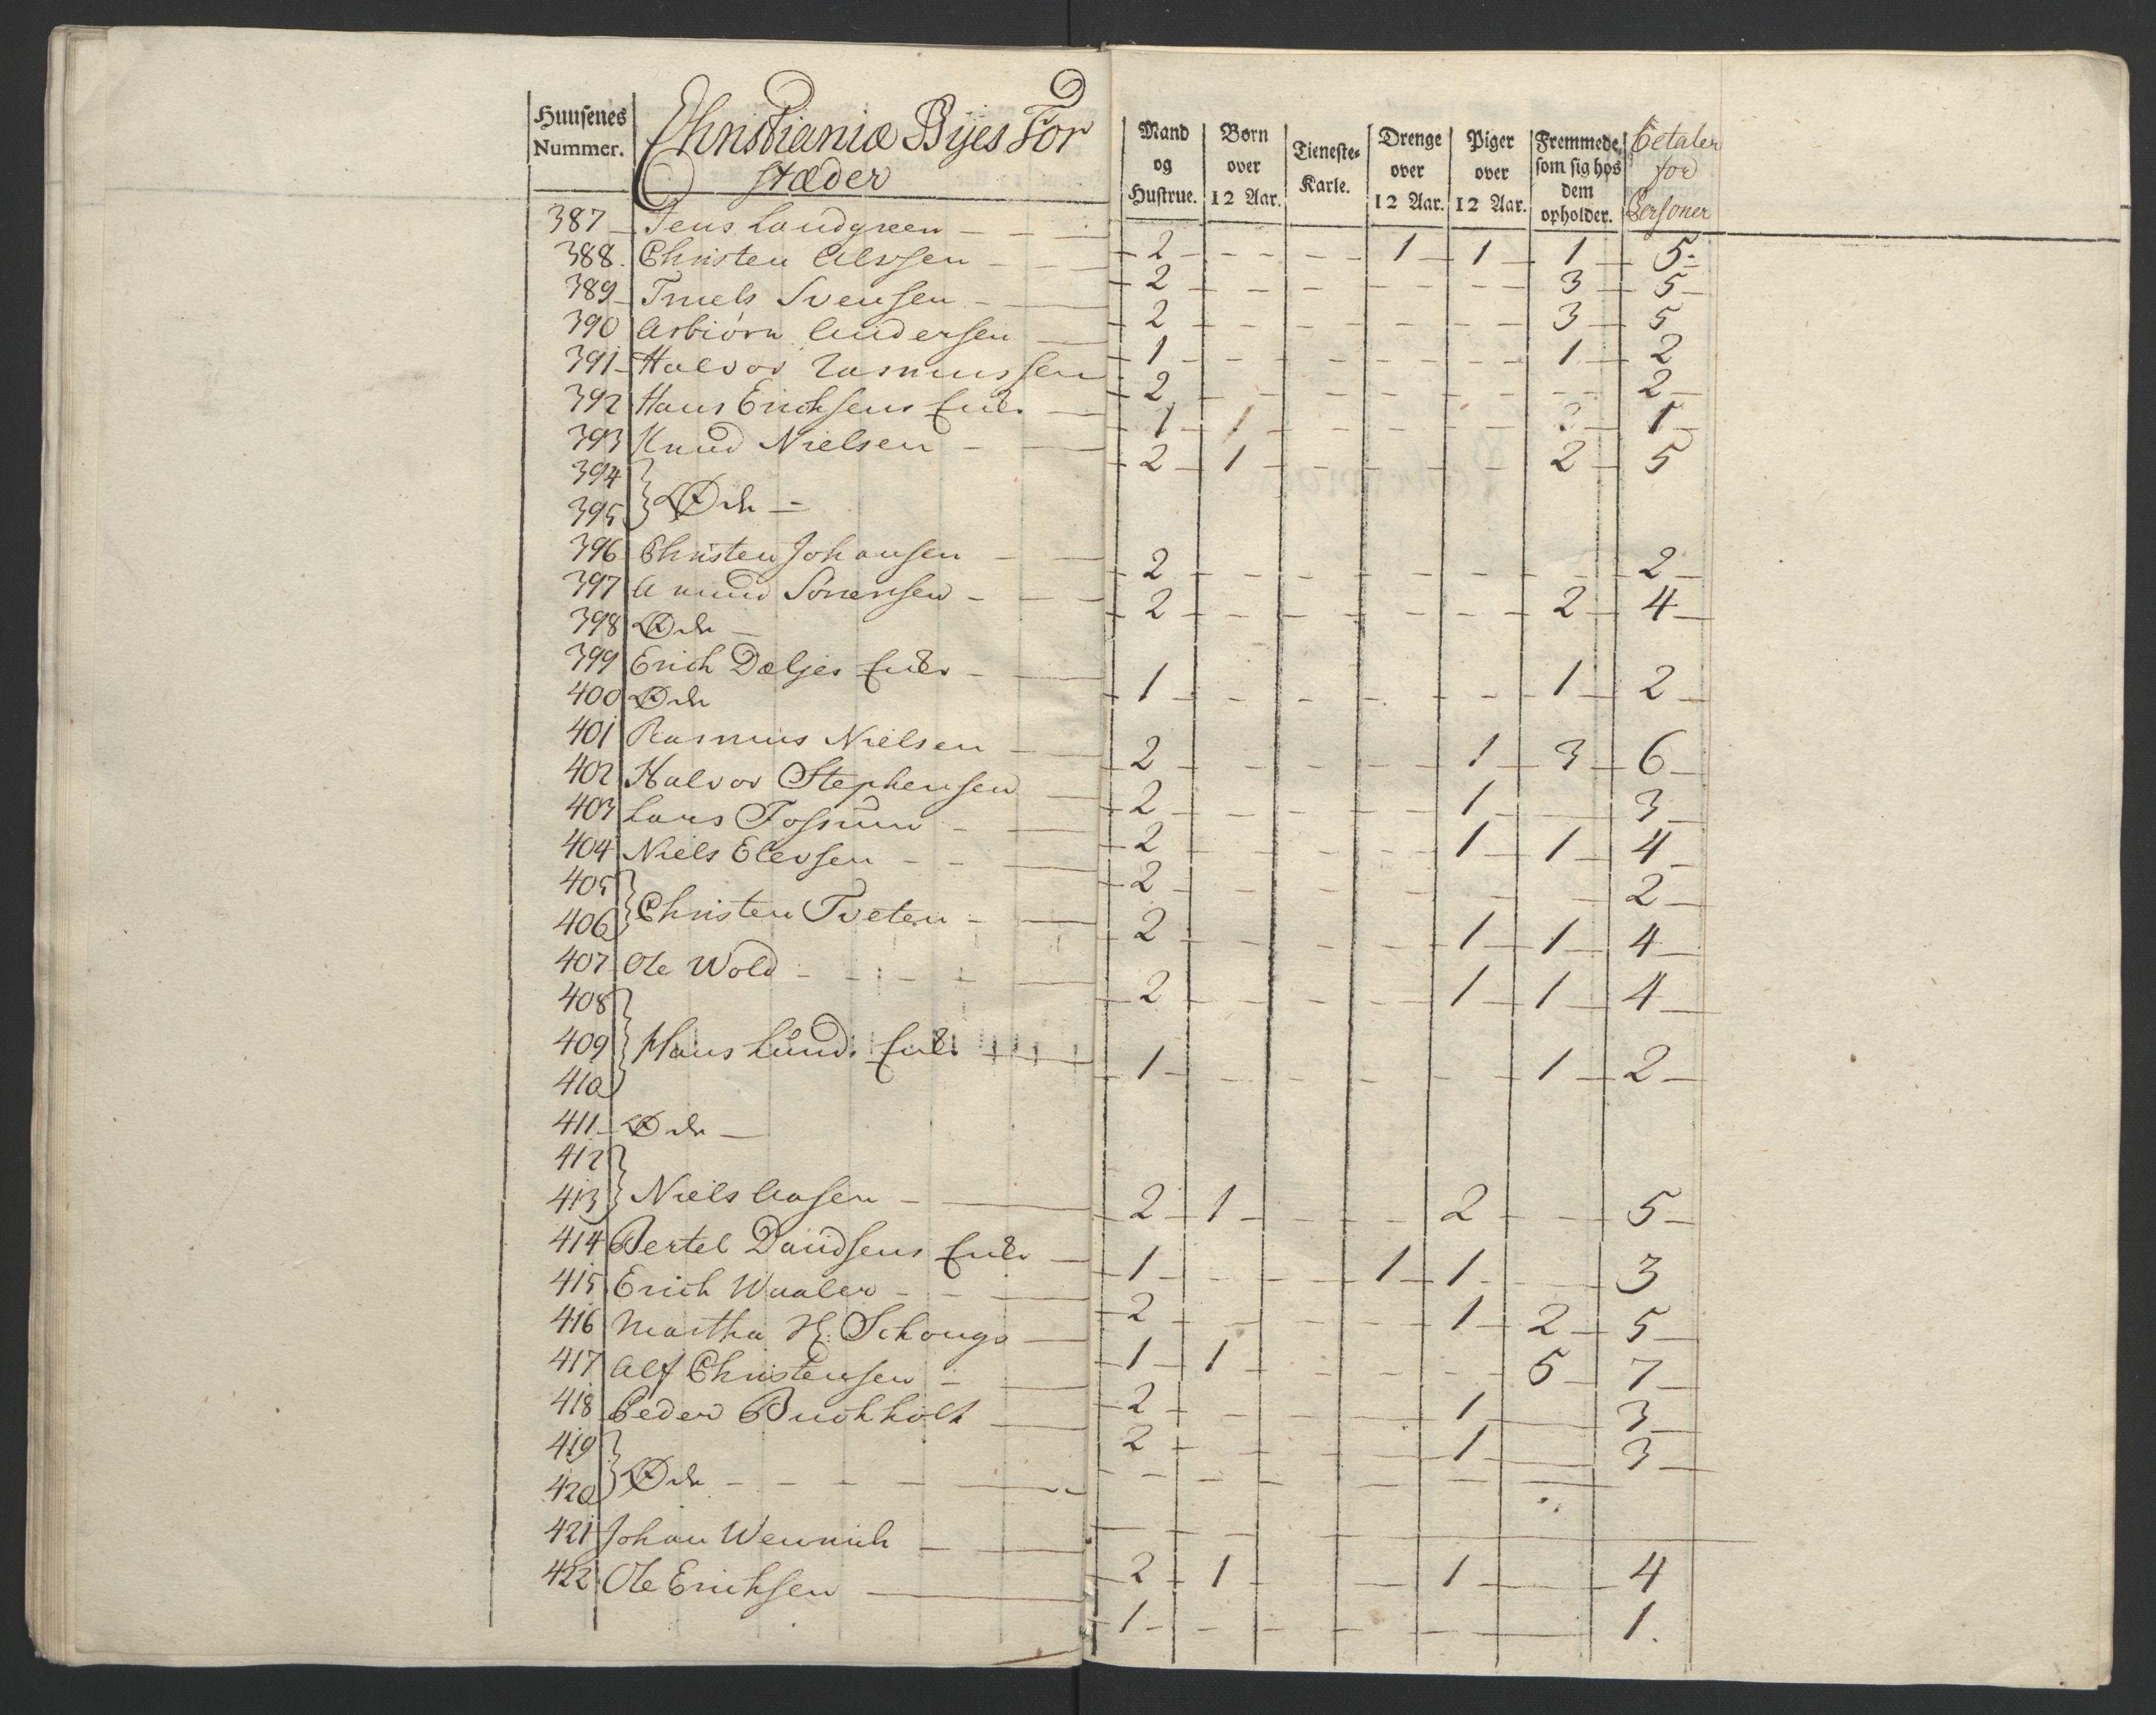 Huusenes Nummer. | Christianiæ Byes For stæder | Mand og Hustrue. | Børn over 12 Aar. | Tieneste-Karle. | Drenge over 12 Aar. | Piger over 12 Aar. | Fremmede, som sig hos dem opholder. | Betaler for Personer
387 Jens Landgreen - - - 2 - - - - 1 - 1 - 1 - 5
388. Christen Alvsen - - - 2 - - - - - - 3 - 5
389 Truels Svensen - - 2 - - - - - - 3 - 5
390 Asbiørn Andersen - 1 - - - - - - 1 - 2
391 Halvor Rasmussen 2 - - - - - - - 2
392 Hans Erichsens Enke - 1 1 - - - - 1
393 Knud Nielsen - - 2 - 1 - - - - 2 - 5
394
395 } Øde -
396 Christen Johansen - - 2 - - - - - - - 2
397 Amund Sörensen - - 2 - - - - - - 2 - 4
398 Øde -
399 Erich Dæljes Enke - - 1 - - - - - - 1 - 2
400 Øde
401 Rasmus Nielsen - - 2 - - - - 1 - 3 - 6
402 Halvor Stephensen - 2 - - - - 1 - 3
403 Lars Fossum - - 2 - - - - 1 - 1 - 4
404 Niels Elevsen - - - 2 - - - - - - 2
405
406 } Christen Tveten - - 2 - - - - 1 - 1 - 4
407 Ole Wold - - - - 2 - - - - 1 - 1 - 4
408
409 } Hans Lunds Enke - 1 - - - - - - 1 - 2
410
411 Øde -
412
413 } Niels Aasen - - 2 - 1 - - - 2 - - 5
414 Bertel Davidsens Enke - 1 - - - 1 - 1 - 3
415 Erich Waaler - - - 2 - - - - 1 - 2 - 5
416 Martha H: Schougs - 1 - 1 - - - - 5 - 7
417 Alf Christensen - - 2 - - - - 1 - 3
418 Peder Buchholt - 2 - - - - 1 - 3
419
420 } Øde - - - -
421 Johan Wennich - - 2 - 1 - 1 - 4
422 Ole Erichsen - 1 - - - - - 1.